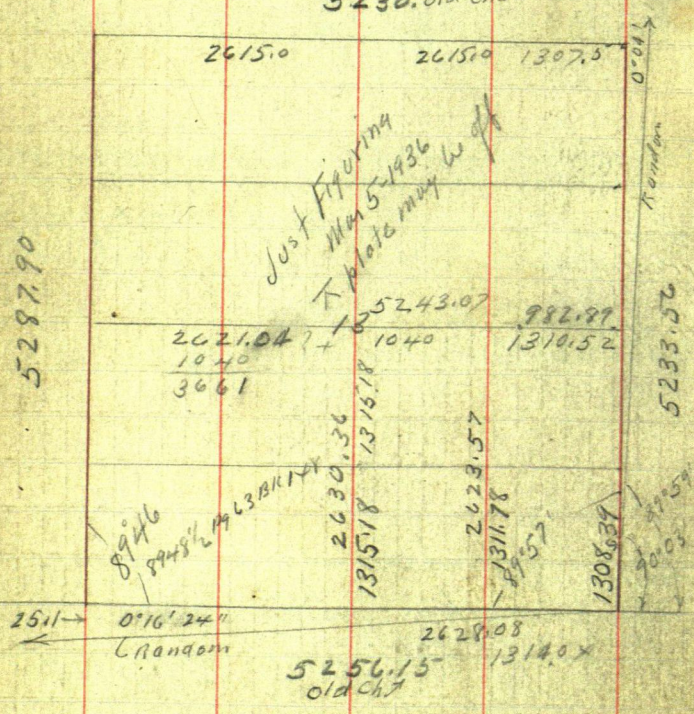 5230. old
2615.0 2615.0 1307.5
0°04'
Random
Just Figuring
Mar 5-1936
K plate may be off
5287.90
13 5243.07 982.89
2621.04 ?+ 1040 1310.52
1040
3661
5233.56
2630.36
1315.18 1315.18
2623.57
1311.78
89°57'
1308.39
89°59
90°03
89°46
8948½ Pg 63 BK
25.11→ 0°16' 24"
Random
2628.08
1314.04
5256.15
old Ch